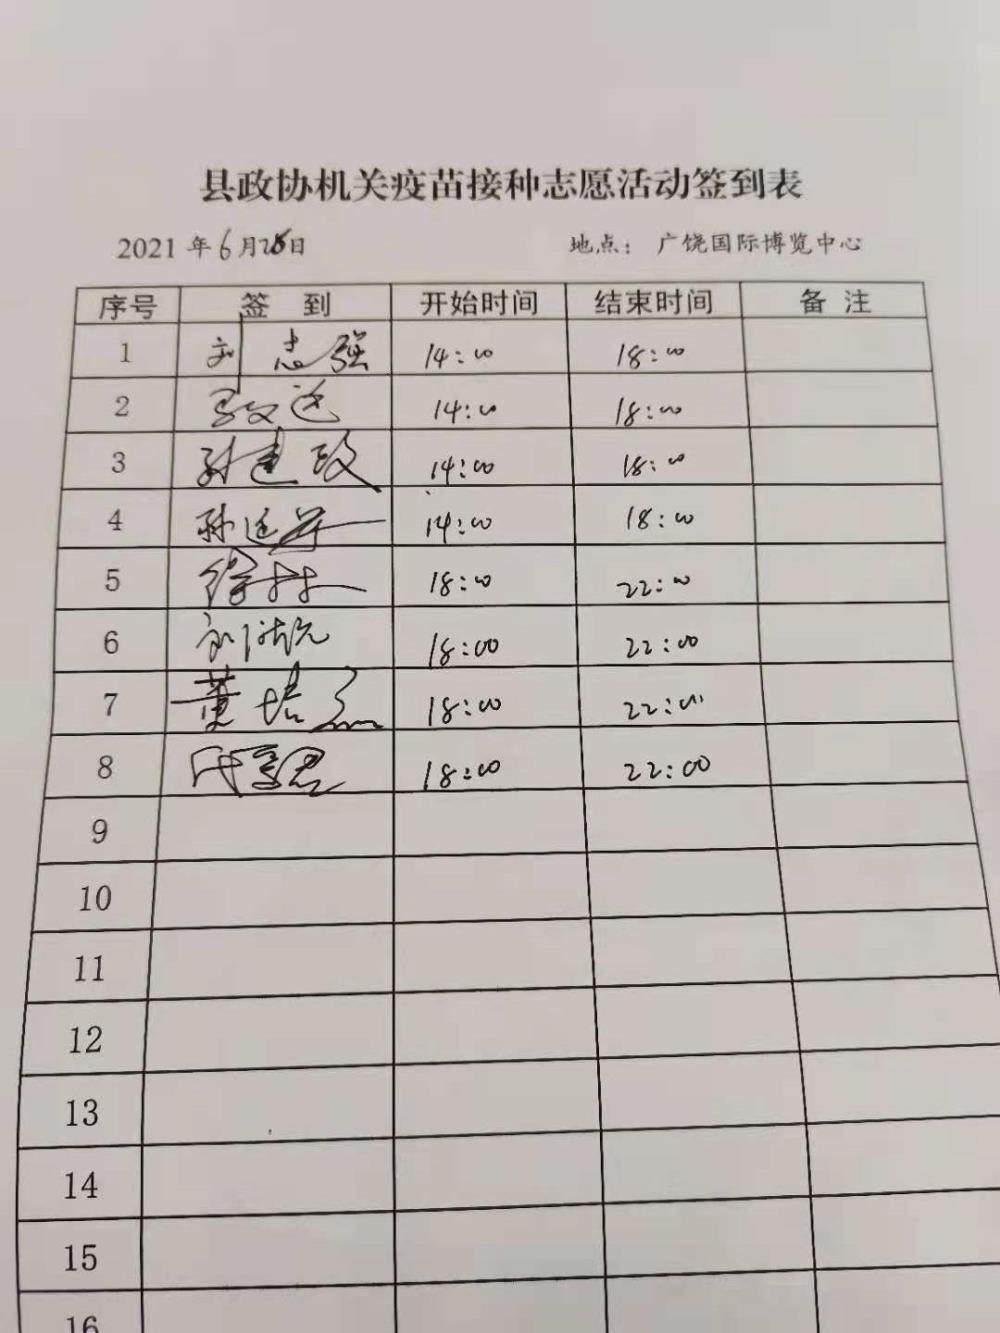 县政协机关疫苗接种志愿活动签到表
2021年6月28日 地点：广饶国际博览中心
序号 签 到 开始时间 结束时间 备 注
1 刘志强 14:00 18:00
2 14:00 18:00
3 孙建政 14:00 18:00
4 孙廷 14:00 18:00
5 徐林 18:00 22:00
6 刘 18:00 22:00
7 董培 18:00 22:00
8 18:00 22:00
9
10
11
12
13
14
15
16